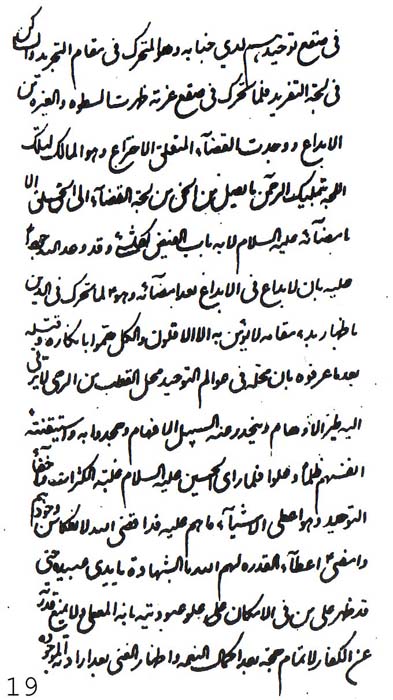 فی صقع توحیدهم لدی جنابه وهو المتحرک فی مقام التجرید والساکن
فی لجة التفرید فلما تحرک فی صقع عزته ظهرت السطوة والغیرة من
الابداع ووجدت القضاء المتعلق الاختراع وهو المالک لتلک
اللجة بتملیک الرحمن ما یصل من الحق من لجة القضاء الی الخلق الا
بامضائه علیه السلام لانه باب الفیض وقد وعد الله
علیه بان لا بداء فی الابداع بعد امضائه وهو لما تحرک فی الدین
باظهار مقامه لا یؤمن به الا الاقلون والکل هموا بانکاره وقتله
بعد ما عرفوه بان محله فی عوالم التوحید محل القطب من الرحی لا یرقی
الیه طیر الاوهام وینحدر عنه السیل الافهام وجحدوا به واستیقنته
انفسهم ظلما وعلوا فلما رای الحسین علیه السلام غلبة الکثرات
التوحید وهو اعلی الاشیاء ما هم علیه قد قضی الله
وامضی اعطاء القدرة لهم بالشهادة بایدی عبیده حتی
قد ظهر علی من فی الامکان علو عبودیته بانه المعطی ولا یمنع قدرته
عن الکفار لاتمام حجته بعد اکمال النعمة واظهار الغنی بعد ارادته
19